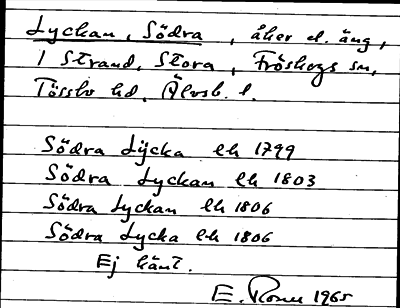 Lyckan, Södra, åker el. äng,
i Strand, Stora, Fröskogs sn,
Tössbo hd, Älvsb. l.
Södra Lÿcka lh 1799
Södra Lyckan lh 1803
Södra Lyckan lh 1806
Södra Lycka lh 1806
Ej känt.
E. 1965